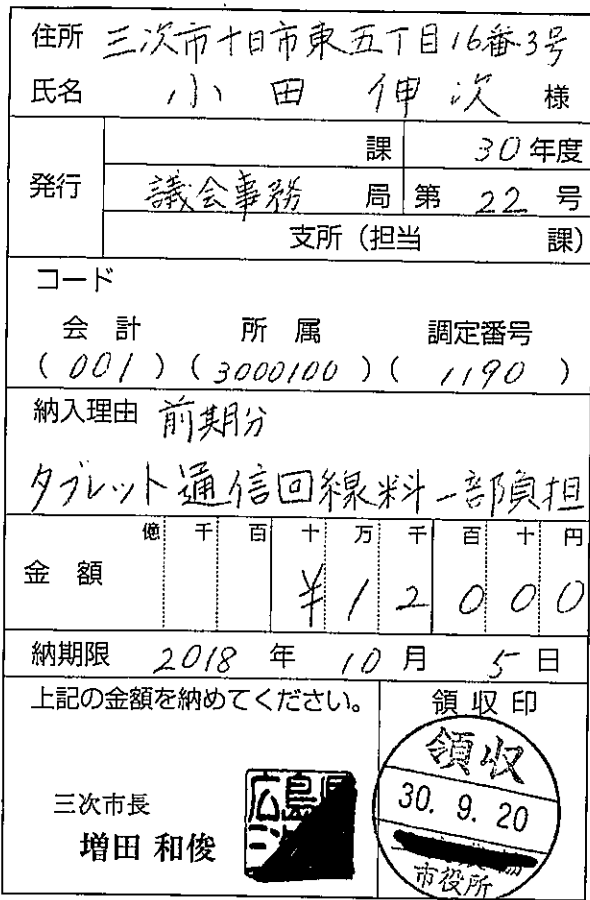 住所 三次市十日市東五丁目16番3号
氏名 小田 伸次 様
課 30年度
発行 議会事務 局 第 22 号
支所（担当 課）
コード
会計 所属 調定番号
(001) (3000100) (1190)
納入理由 前期分
タブレット通信回線料一部負担
億 千 百 十 万 千 百 十 円
金額 ¥12000
納期限 2018 年 10 月 5 日
上記の金額を納めてください。 領収印
領収
30. 9. 20
市役所
三次市長
増田 和俊
広島